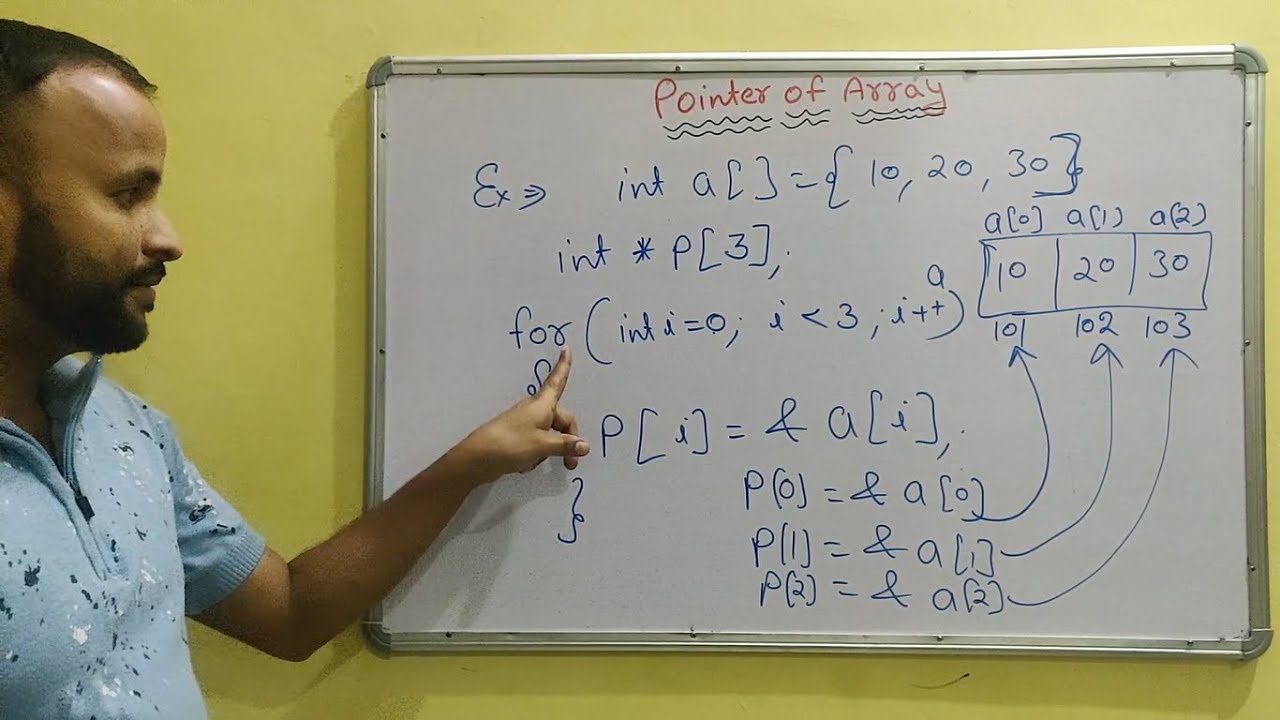 Pointer of Array
Ex ⇒ int a[ ] = { 10, 20, 30}
int * P[3];
a[0] a[1] a[2]
a 10 20 30
101 102 103
for (int i=0; i < 3 ; i++)
{
P[i] = & a[i];
P[0] = & a[0]
}
P[1] = & a[1]
P[2] = & a[2]